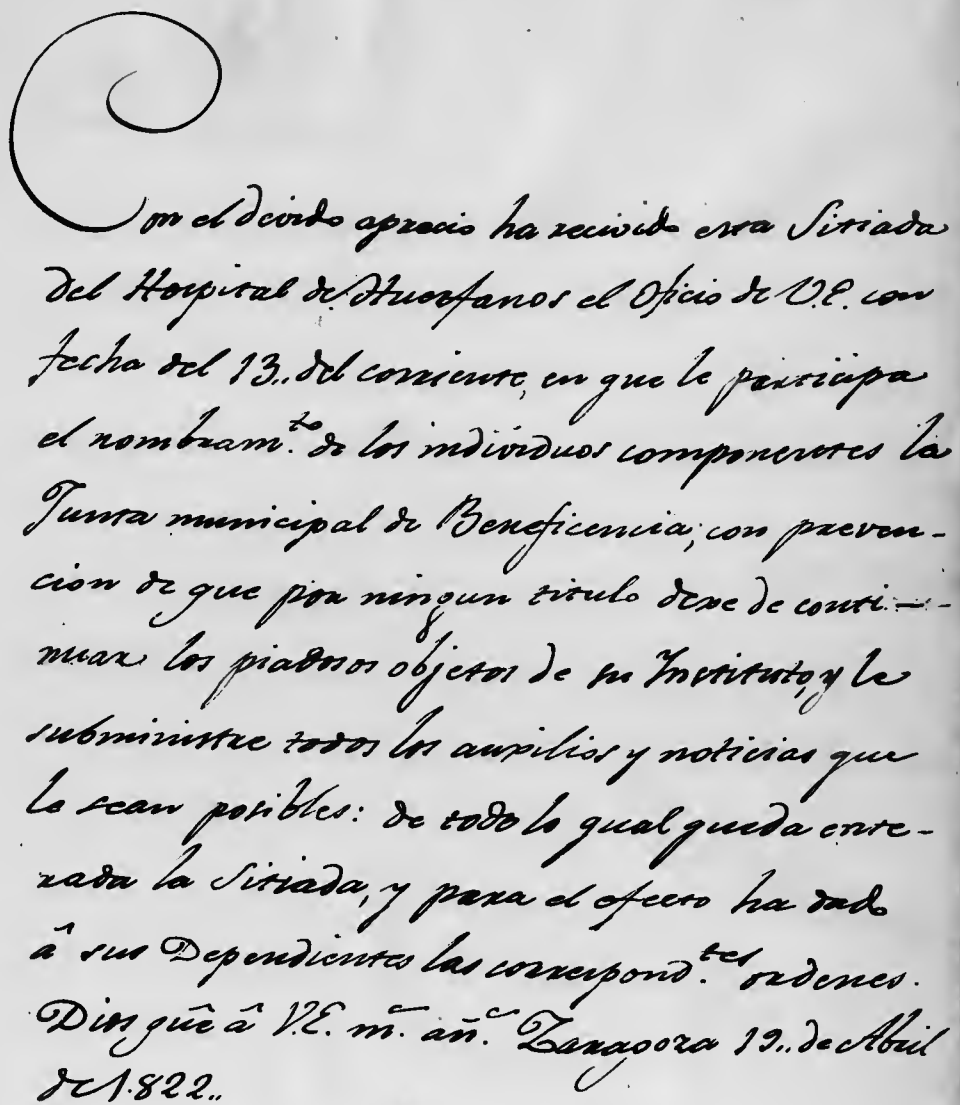 Con el devido aprecio ha recivido esta Sitiada
del Hospital de Huerfanos el Oficio de V.E. con
fecha del 13.. del corriente, en que le participa
el nombram.to de los individuos componentes la
Junta municipal de Beneficencia; con preven-
cion de que por ningun titulo dexe de conti-
nuar los piadosos objetos de su Instituto, y le
subministre todos los auxilios y noticias que
la sean posibles: de todo lo qual queda ente-
rada la Sitiada, y para el efecto ha dado
â sus Dependientes las correspond.tes ordenes.
Dios gûe â V.E. m.s an.s Zaragoza 19.. de Abril
de 1.822..